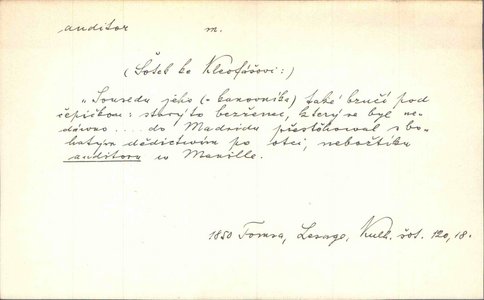 auditor m.
(Šoteb ke Kleofášovi:)
„Souseda jeho (= kanovníka) také bručí pod
čepičkou: starý to bezženec, který se byl ne-
dávno ... do Madridu přestěhoval s bo-
hatým dědictvím po otci, nebožtíku
auditoru v Manille.
1850 Tomsa, Lesage, Kulh. šot. 120, 18.